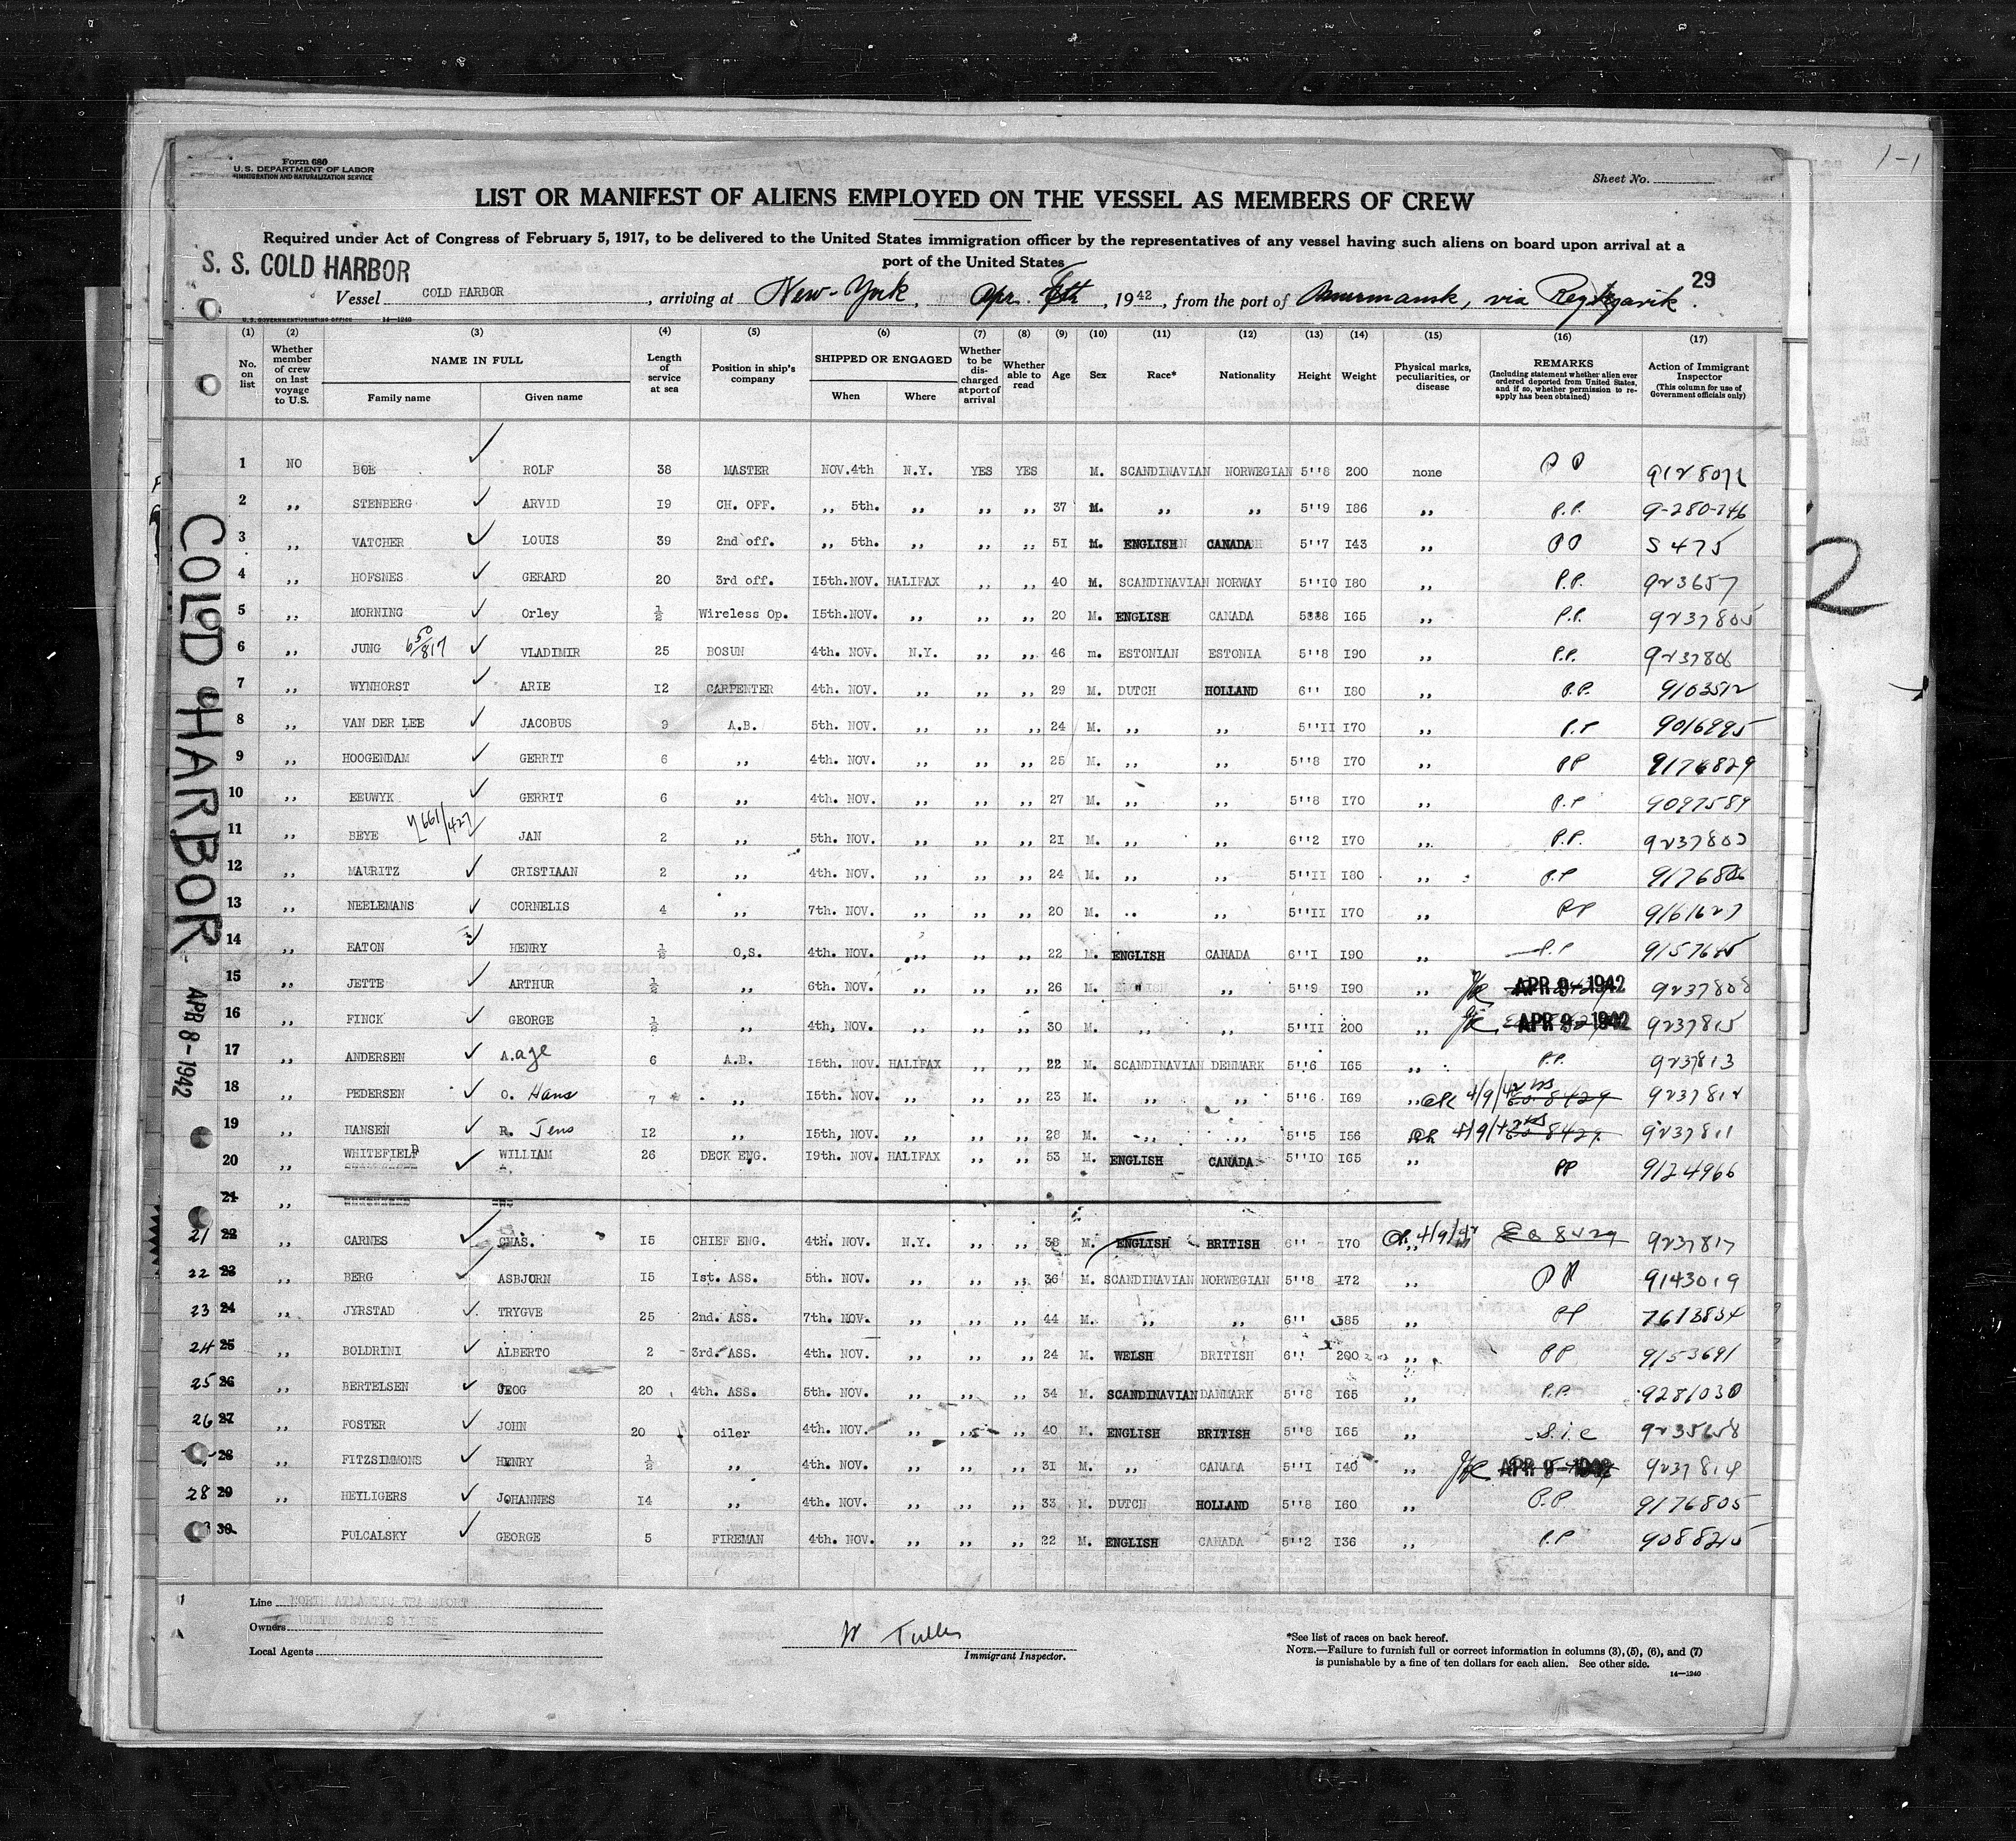 1-1
Form 680
U.S. DEPARTMENT OF LABOR
IMMIGRATION AND NATURALIZATION SERVICE
Sheet No.
LIST OR MANIFEST OF ALIENS EMPLOYED ON THE VESSEL AS MEMBERS OF CREW
Required under Act of Congress of February 5, 1917, to be delivered to the United States immigration officer by the representatives of any vessel having such aliens on board upon arrival at a
port of the United States
S. S. COLD HARBOR
29
Vessel COLD HARBOR, arriving at New-York, Apr. 1942, from the port of via
U.S. GOVERNMENT PRINTING OFFICE 14-1240
(1) (2) (3) (4) (5) (6) (7) (8) (9) (10) (11) (12) (13) (14) (15) (16) (17)
No. on list
Whether member of crew on last voyage to U.S.
NAME IN FULL
Family name Given name
Length of service at sea
Position in ship's company
SHIPPED OR ENGAGED
When Where
Whether to be discharged at port of arrival
Whether able to read
Age
Sex
Race*
Nationality
Height
Weight
Physical marks, peculiarities, or disease
REMARKS
(Including statement whether alien ever ordered deported from United States, and if so, whether permission to reapply has been obtained)
Action of Immigrant Inspector
(This column for use of Government officials only)
1 NO BOE ROLF 38 MASTER NOV.4th N.Y. YES YES M. SCANDINAVIAN NORWEGIAN 5''8 200 none PP
2 ,, STENBERG ARVID 19 CH. OFF. ,, 5th. ,, ,, ,, 37 M. ,, ,, 5''9 186 ,, P.P. 9-280-746
3 ,, VATCHER LOUIS 39 2nd off. ,, 5th. ,, ,, ,, 51 M. ENGLISH CANADA 5''7 143 ,, PP S 475
4 ,, HOFSNES GERARD 20 3rd off. 15th.NOV. HALIFAX ,, ,, 40 M. SCANDINAVIAN NORWAY 5''10 180 ,, P.P. 923657
5 ,, MORNING Orley ½ Wireless Op. 15th.NOV. ,, ,, ,, 20 M. ENGLISH CANADA 165 ,, P.P. 9237805
6 ,, JUNG 650/817 VLADIMIR 25 BOSUN 4th. NOV. N.Y. ,, ,, 46 m. ESTONIAN ESTONIA 5''8 190 ,, P.P. 9237806
7 ,, WYNHORST ARIE 12 CARPENTER 4th. NOV. ,, ,, ,, 29 M. DUTCH HOLLAND 6'' 180 ,, P.P. 9103512
8 ,, VAN DER LEE JACOBUS 9 A.B. 5th. NOV. ,, ,, ,, 24 M. ,, ,, 5''11 170 ,, P.P 9016995
9 ,, HOOGENDAM GERRIT 6 ,, 4th. NOV. ,, ,, ,, 25 M. ,, ,, 5''8 170 ,, PP 9176829
10 ,, EEUWYK GERRIT 6 ,, 4th. NOV. ,, ,, ,, 27 M. ,, ,, 5''8 170 ,, P.P 9097589
11 ,, BEYE 661/427 JAN 2 ,, 5th. NOV. ,, ,, ,, 21 M. ,, ,, 6''2 170 ,, P.P. 9237803
12 ,, MAURITZ CRISTIAAN 2 ,, 4th. NOV. ,, ,, ,, 24 M. ,, ,, 5''11 180 ,, P.P 9176806
13 ,, NEELEMANS CORNELIS 4 ,, 7th. NOV. ,, ,, ,, 20 M. ,, ,, 5''11 170 ,, PP 9161627
14 ,, EATON HENRY ½ O,S. 4th. NOV. ,, ,, ,, 22 M. ENGLISH CANADA 6''1 190 ,, P.P 9157645
15 ,, JETTE ARTHUR ½ ,, 6th. NOV. ,, ,, ,, 26 M. " ,, 5''9 190 ,, APR 9-1942 9237808
16 ,, FINCK GEORGE ½ ,, 4th, NOV. ,, ,, ,, 30 M. ,, ,, 5''11 200 ,, APR 9-1942 9237815
17 ,, ANDERSEN A.age 6 A.B. 15th. NOV. HALIFAX ,, ,, 22 M. SCANDINAVIAN DENMARK 5''6 165 ,, P.P. 9237813
18 ,, PEDERSEN O. Hans 7 ,, 15th. NOV. ,, ,, ,, 23 M. ,, ,, 5''6 169 ,, 4/9/42 8429 9237812
19 ,, HANSEN R. Jens 12 ,, 15th, NOV. ,, ,, ,, 28 M. ,, ,, 5''5 156 4/9/42 8429 9237811
20 ,, WHITEFIELD WILLIAM 26 DECK ENG. 19th. NOV. HALIFAX ,, ,, 53 M. ENGLISH CANADA 5''10 165 ,, PP 9124966
21 ,,
21 22 ,, CARNES CHAS. 15 CHIEF ENG. 4th. NOV. N.Y. ,, ,, 38 M. ENGLISH BRITISH 6'' 170 4/9/42 8429 9237817
22 23 ,, BERG ASBJORN 15 1st. ASS. 5th. NOV. ,, ,, ,, 36 M. SCANDINAVIAN NORWEGIAN 5''8 172 ,, PP 9143019
23 24 ,, JYRSTAD TRYGVE 25 2nd. ASS. 7th. NOV. ,, ,, ,, 44 M. ,, ,, 6'' ,, PP 7613834
24 25 ,, BOLDRINI ALBERTO 2 3rd. ASS. 4th. NOV. ,, ,, ,, 24 M. WELSH BRITISH 6'' 200 ,, PP 9153691
25 26 ,, BERTELSEN 20 4th. ASS. 5th. NOV. ,, ,, ,, 34 M. SCANDINAVIAN DANMARK 5''8 165 ,, P.P. 9281030
26 27 ,, FOSTER JOHN 20 oiler 4th. NOV. ,, ,, ,, 40 M. ENGLISH BRITISH 5''8 165 ,, S.i.c 9235658
28 ,, FITZSIMMONS HENRY ½ ,, 4th. NOV. ,, ,, ,, 31 M. ,, CANADA 5''1 140 ,, APR 9-1942 9237814
28 29 ,, HEYLIGERS JOHANNES 14 ,, 4th. NOV. ,, ,, ,, 33 M. DUTCH HOLLAND 5''8 160 ,, P.P 9176805
30 PULCALSKY GEORGE 5 FIREMAN 4th. NOV. ,, ,, ,, 22 M. ENGLISH CANADA 5''2 136 ,, P.P
COLD HARBOR
APR 8-1942
2
Line NORTH ATLANTIC TRANSPORT
Owners UNITED STATES LINES
Local Agents
Immigrant Inspector.
*See list of races on back hereof.
NOTE.—Failure to furnish full or correct information in columns (3), (5), (6), and (7)
is punishable by a fine of ten dollars for each alien. See other side.
14-1240